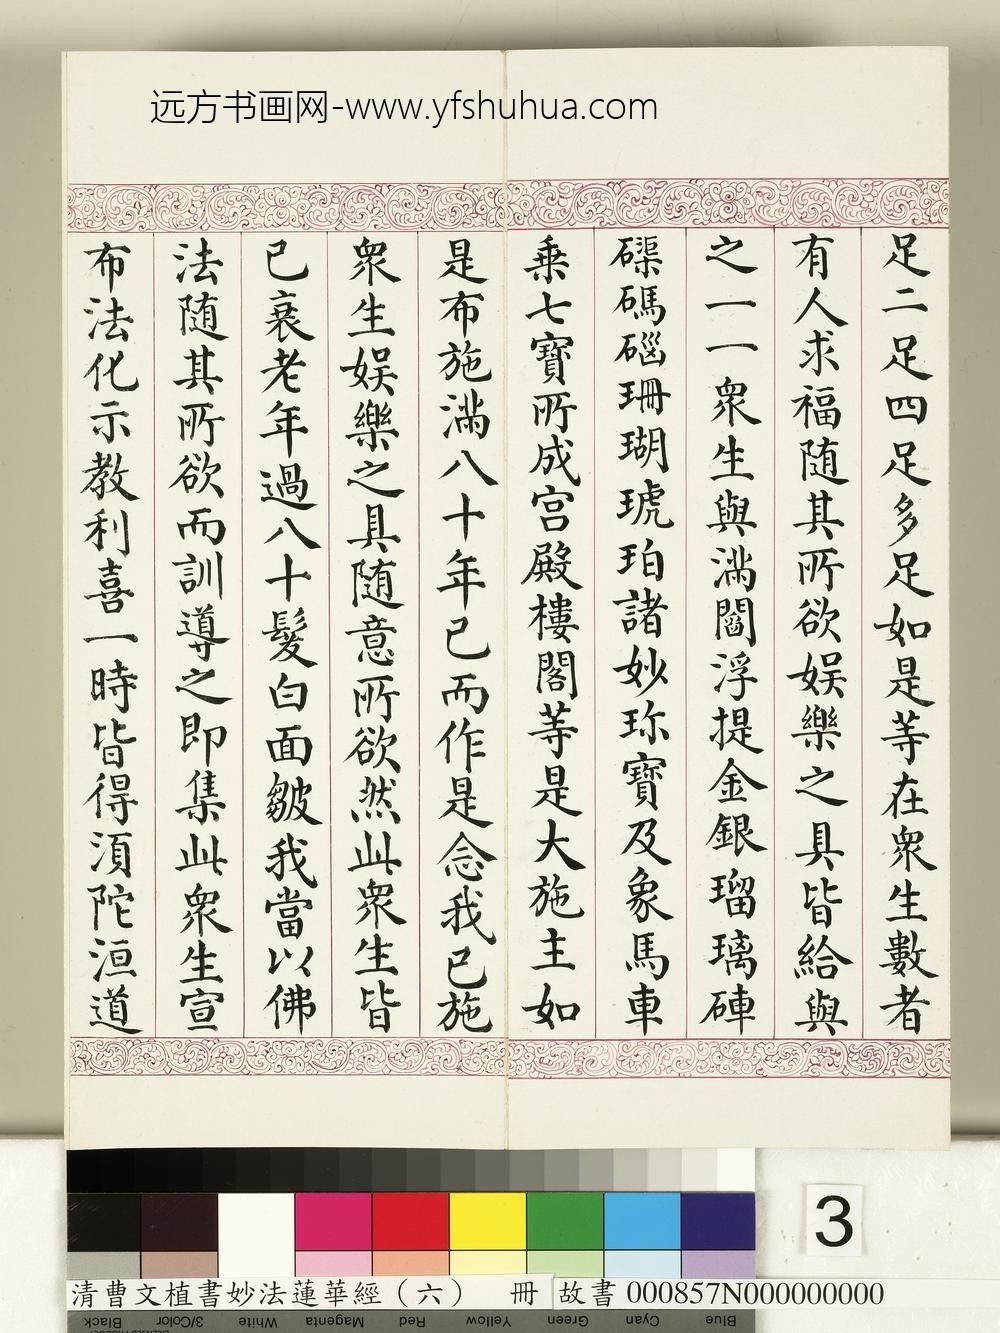 远方书画网-www.yfshuhua.com
足二足四足多足如是等在衆生數者
有人求福随其所欲娱樂之具皆給與
之一一衆生與滿閻浮提金銀瑠璃硨
磲碼碯珊瑚琥珀諸妙珎寶及象馬車
乗七寶所成宫殿樓閣等是大施主如
是布施滿八十年已而作是念我已施
衆生娱樂之具随意所欲然此衆生皆
已衰老年過八十髮白面皺我當以佛
法随其所欲而訓導之即集此衆生宣
布法化示教利喜一時皆得湏陀洹道
3
清曹文植書妙法蓮華經（六） 冊 故書 000857N000000000
Black 3/Color White Magenta Red Yellow Green Cyan Blue